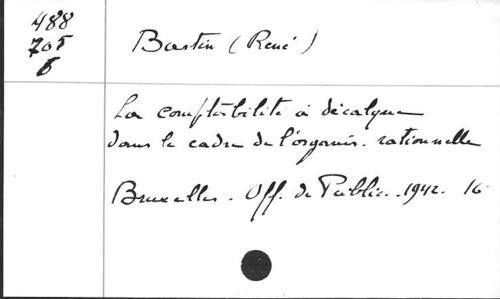 488
705
B
Bastin (René)
La comptabilité à décalque
dans le cadre de l'organis. rationnelle
Bruxelles. Off. de Public. 1942. 16